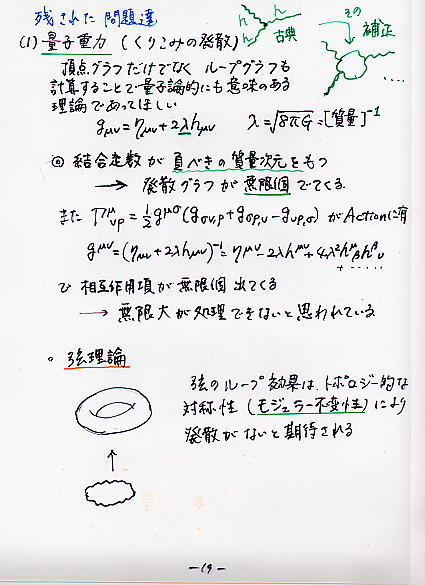 残された問題達
(1) 量子重力 (くりこみの発散)
h h h h 古典
その補正
頂点グラフだけでなくループグラフも
計算することで量子論的にも意味のある
理論であってほしい
gμν = ημν + 2λhμν λ = √8πG = [質量]⁻¹
@ 結合定数が負べきの質量次元をもつ
→ 発散グラフが無限個でてくる.
また Γ^μ_νρ = ½ g^μσ (g_σν,ρ + g_σρ,ν - g_νρ,σ) がActionに有
g^μν = (ημν + 2λhμν)⁻¹ = η^μν - 2λh^μν + 4λ²h^μ_β h^β_ν + ‥‥‥
で 相互作用項が無限個出てくる
→ 無限大が処理できないと思われている
。弦理論
弦のループ効果は、トポロジー的な
対称性 (モジュラー不変性) により
発散がないと期待される
-19-